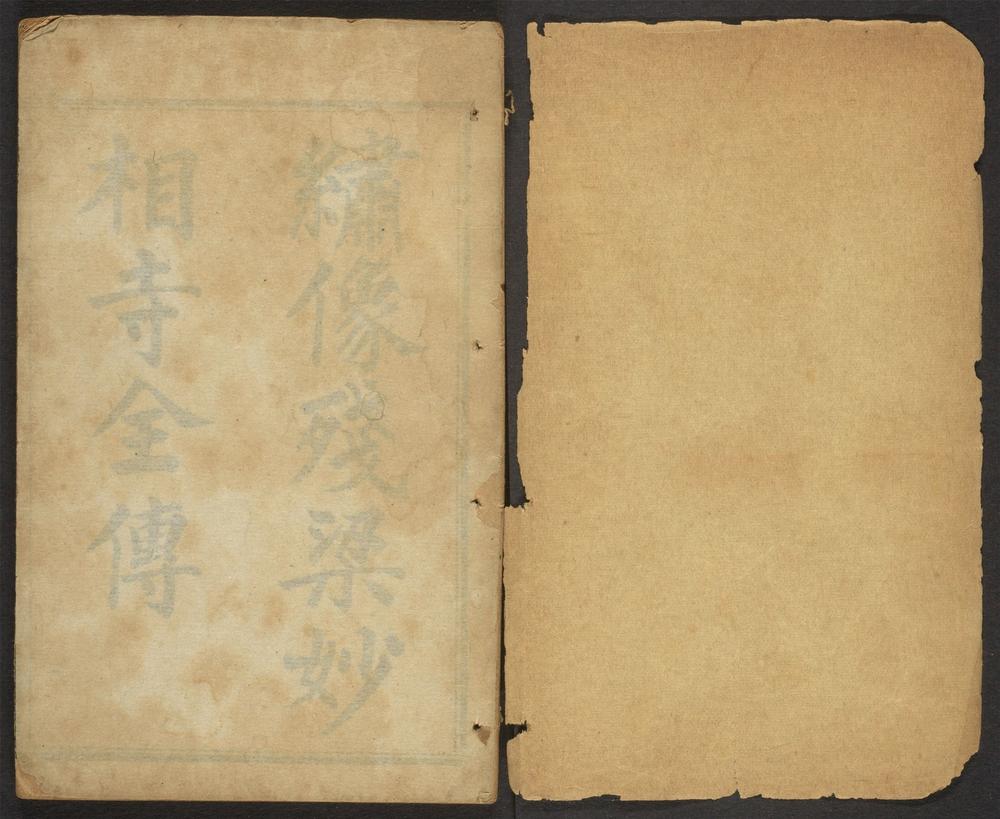 繡像殘梁妙
相寺全傳